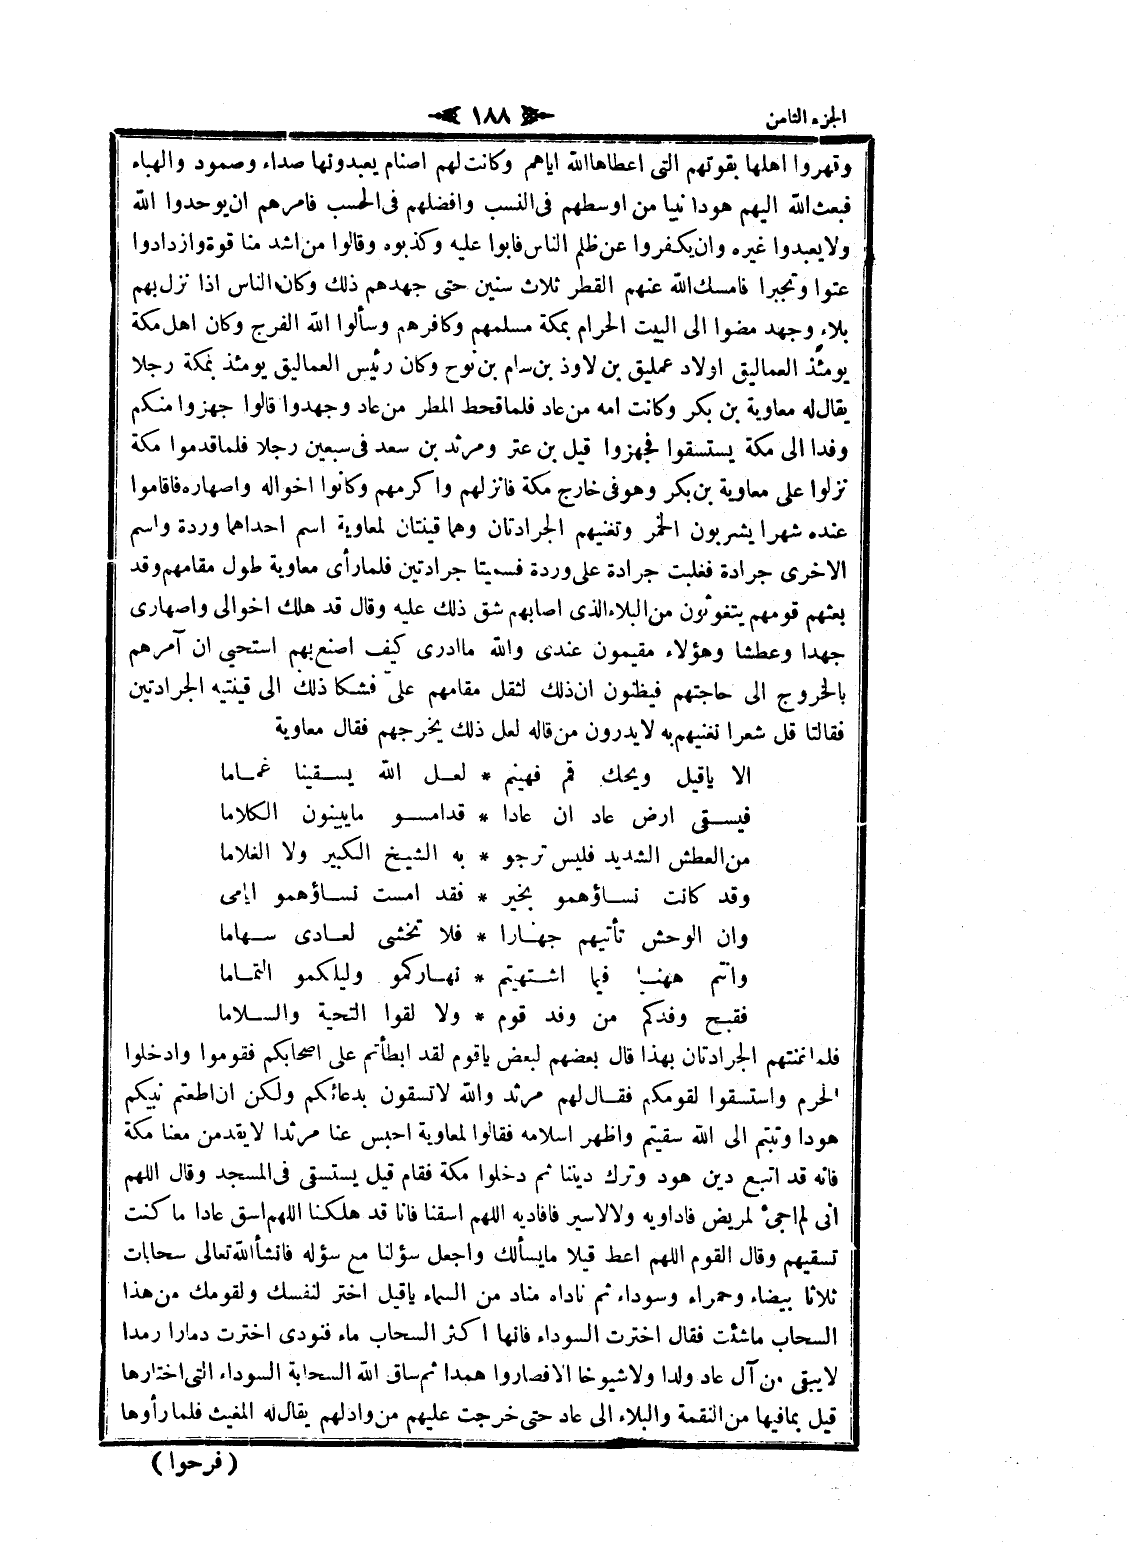 الجزء الثامن
١٨٨
وقهروا اهلها بقوتهم التى اعطاها الله اياهم وكانت لهم اصنام يعبدونها صداء وصمود والهباء
فبعث الله اليهم هودا نبيا من اوسطهم فى النسب وافضلهم فى الحسب فامرهم ان يوحدوا الله
ولا يعبدوا غيره وان يكفروا عن ظلم الناس فابوا عليه وكذبوه وقالوا من اشد منا قوة وازدادوا
عتوا وتجبرا فامسك الله عنهم القطر ثلاث سنين حتى جهدهم ذلك وكان الناس اذا نزل بهم
بلاء وجهد مضوا الى البيت الحرام بمكة مسلمهم وكافرهم وسألوا الله الفرج وكان اهل مكة
يومئذ العماليق اولاد عمليق بن لاوذ بن سام بن نوح وكان رئيس العماليق يومئذ بمكة رجلا
يقال له معاوية بن بكر وكانت امه من عاد فلما قحط المطر من عاد وجهدوا قالوا جهزوا منكم
وفدا الى مكة يستسقوا فجهزوا قيل بن عتر ومرثد بن سعد فى سبعين رجلا فلما قدموا مكة
نزلوا على معاوية بن بكر وهو فى خارج مكة فانزلهم واكرمهم وكانوا اخواله واصهاره فاقاموا
عنده شهرا يشربون الخمر وتغنيهم الجرادتان وهما قينتان لمعاوية اسم احداهما وردة واسم
الاخرى جرادة فغلبت جرادة على وردة فسميتا جرادتين فلما رأى معاوية طول مقامهم وقد
بعثهم قومهم يتغوثون من البلاء الذى اصابهم شق ذلك عليه وقال قد هلك اخوالى واصهارى
جهدا وعطشا وهؤلاء مقيمون عندى والله ما ادرى كيف اصنع بهم استحيى ان آمرهم
بالخروج الى حاجتهم فيظنون ان ذلك لثقل مقامهم علىّ فشكا ذلك الى قينتيه الجرادتين
فقالتا قل شعرا نغنيهم به لا يدرون من قاله لعل ذلك يخرجهم فقال معاوية
الا ياقيل ويحك قم فهينم * لعل الله يسقينا غماما
فيسقى ارض عاد ان عادا * قدامسو مايبينون الكلاما
من العطش الشديد فليس ترجو * به الشيخ الكبير ولا الغلاما
وقد كانت نساؤهمو بخير * فقد امست نساؤهمو ايامى
وان الوحش تأتيهم جهارا * فلا تخشى لعادى سهاما
وانتم ههنا فيما اشتهيتم * نهاركمو وليلكمو التماما
فقبح وفدكم من وفد قوم * ولا لقوا التحية والسلاما
فلما غنتهم الجرادتان بهذا قال بعضهم لبعض ياقوم لقد ابطأتم على اصحابكم فقوموا وادخلوا
الحرم واستسقوا لقومكم فقال لهم مرثد والله لا تسقون بدعائكم ولكن ان اطعتم نبيكم
هودا وتبتم الى الله سقيتم واظهر اسلامه فقالوا لمعاوية احبس عنا مرثدا لا يقدمن معنا مكة
فانه قد اتبع دين هود وترك ديننا ثم دخلوا مكة فقام قيل يستسقى فى المسجد وقال اللهم
انى لم اجئ لمريض فاداويه ولا لاسير فافاديه اللهم اسقنا فانا قد هلكنا اللهم اسق عادا ما كنت
تسقيهم وقال القوم اللهم اعط قيلا ما يسألك واجعل سؤلنا مع سؤله فانشأ الله تعالى سحابات
ثلاثا بيضاء وحمراء وسوداء ثم ناداه مناد من السماء ياقيل اختر لنفسك ولقومك من هذا
السحاب ماشئت فقال اخترت السوداء فانها اكثر السحاب ماء فنودى اخترت دمارا رمدا
لا يبقى من آل عاد ولدا ولا شيوخا الا فصاروا همدا ثم ساق الله السحابة السوداء التى اختارها
قيل بمافيها من النقمة والبلاء الى عاد حتى خرجت عليهم من واد لهم يقال له المغيث فلما رأوها
( فرحوا )